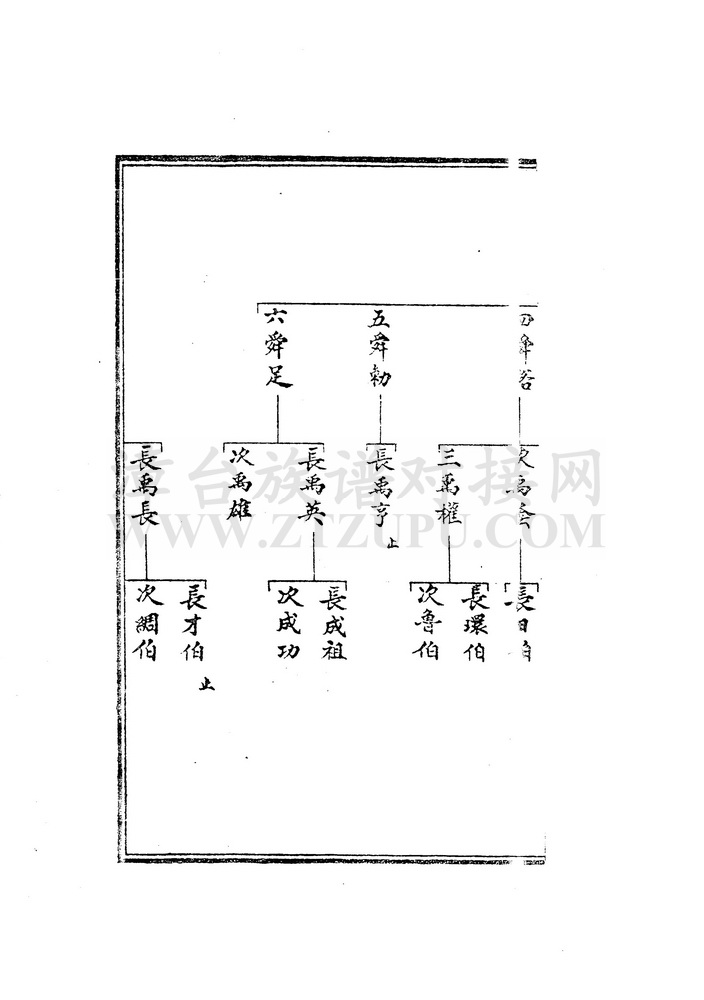 五舜勅
六舜足
三禹權
長禹亨
止
長禹英
次禹雄
長禹長
長環伯
次魯伯
長成祖
次成功
長才伯
止
次綢伯
台族谱对接网
WWW.ZTZUPU.COM